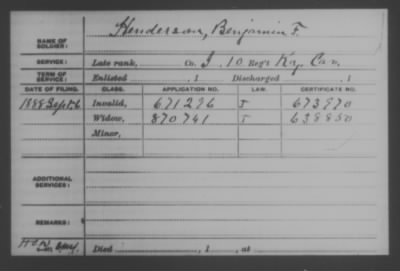 Henderson, Benjamin F.
NAME OF
SOLDIER:
SERVICE: Late rank, Co. I, 10 Reg't Ky. Cav.
TERM OF
SERVICE: Enlisted , 1 Discharged , 1
DATE OF FILING. CLASS. APPLICATION NO. LAW. CERTIFICATE NO.
1888 Sept 6 Invalid, 671296 J 673970
Widow, 870741 J 638850
Minor,
ADDITIONAL
SERVICES:
REMARKS:
Died , 1 , at